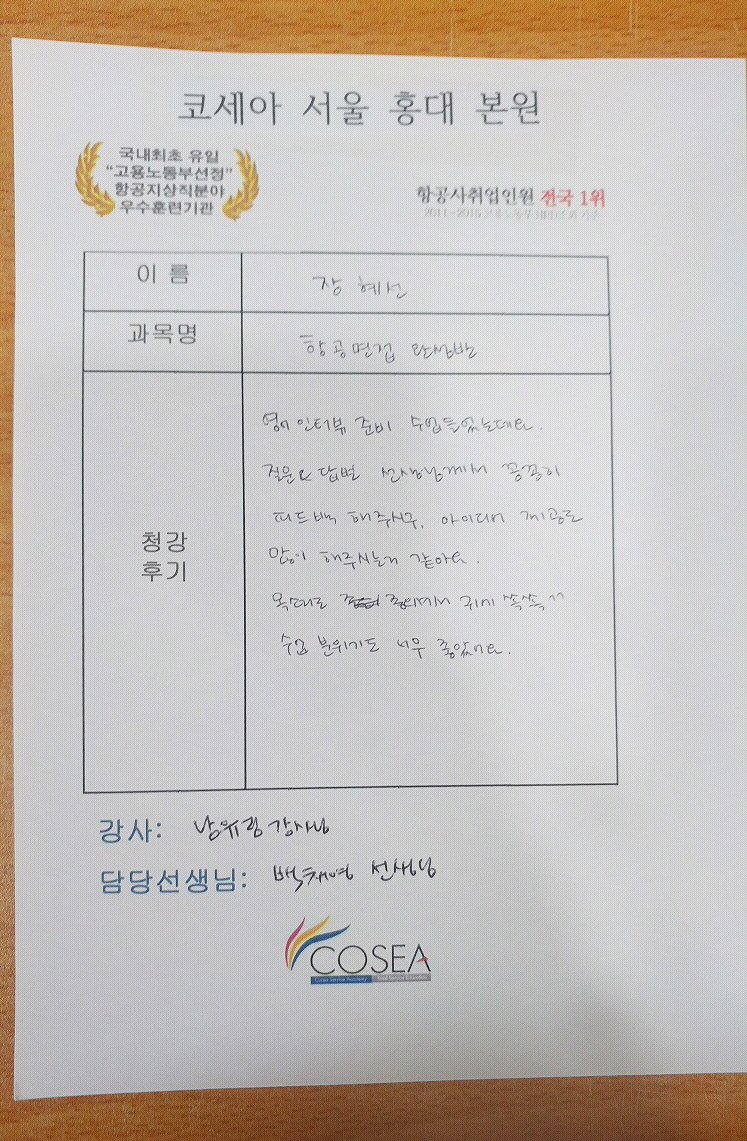 코세아 서울 홍대 본원
국내최초 유일
"고용노동부선정"
항공지상직분야
우수훈련기관
항공사취업인원 전국 1위
이 름
장 혜선
과목명
항공면접 완성반
청강
후기
영어 인터뷰 준비 수업들었는데요.
질문 답변 선생님께서 꼼꼼히
피드백 해주시구, 아이디어 제공도
많이 해주시는거 같아요.
목소리도 귀에 쏙쏙
수업 분위기도 너무 좋았어요.
강사: 남유림 강사님
담당선생님: 백채영 선생님
COSEA